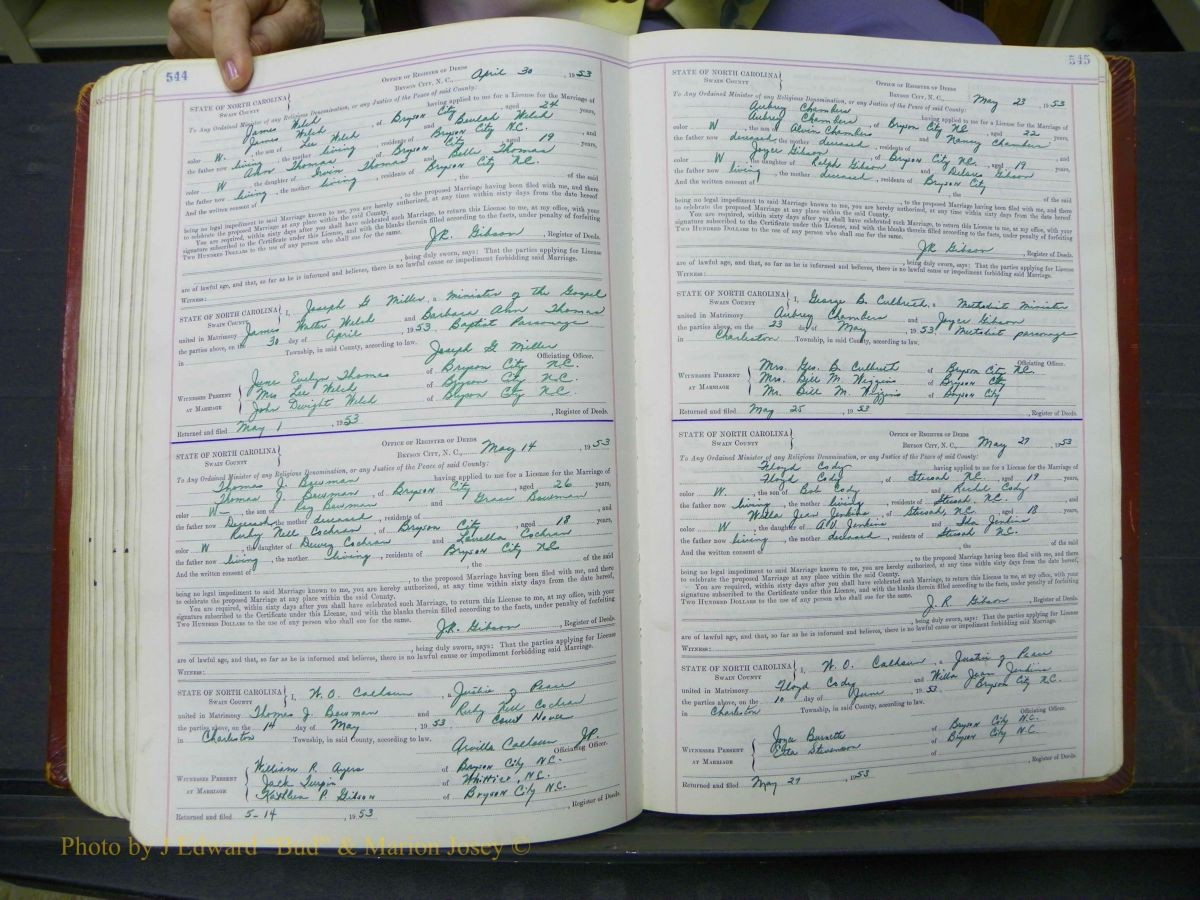 544
OFFICE OF REGISTER OF DEEDS
STATE OF NORTH CAROLINA
SWAIN COUNTY
BRYSON CITY, N. C., April 30, 1953
To Any Ordained Minister of any Religious Denomination, or any Justice of the Peace of said County:
James Welch having applied to me for a License for the Marriage of
James Welch, of Bryson City, aged 24 years,
color W., the son of Lee Welch and Beulah Welch
the father now living, the mother living, residents of Bryson City N.C. and
Ann Thomas, of Bryson City, aged 19 years,
color W the daughter of Irvin Thomas and Belle Thomas
the father now living, the mother living, residents of Bryson City N.C.
And the written consent of , the of the said
, to the proposed Marriage having been filed with me, and there
being no legal impediment to said Marriage known to me, you are hereby authorized, at any time within sixty days from the date hereof,
to celebrate the proposed Marriage at any place within the said County.
You are required, within sixty days after you shall have celebrated such Marriage, to return this License to me, at my office, with your
signature subscribed to the Certificate under this License, and with the blanks therein filled according to the facts, under penalty of forfeiting
TWO HUNDRED DOLLARS to the use of any person who shall sue for the same.
J.R. Gibson, Register of Deeds.
, being duly sworn, says: That the parties applying for License
are of lawful age, and that, so far as he is informed and believes, there is no lawful cause or impediment forbidding said Marriage.
WITNESS:
STATE OF NORTH CAROLINA
SWAIN COUNTY
I, Joseph G Miller, a Minister of the Gospel
united in Matrimony James Walter Welch and Barbara Ann Thomas
the parties above, on the 30 day of April, 1953, Baptist Parsonage
in Township, in said County, according to law.
Joseph G Miller
Officiating Officer.
WITNESSES PRESENT AT MARRIAGE
June Evelyn Thomas of Bryson City N.C.
Mrs Lee Welch of Bryson City N.C.
John Dwight Welch of Bryson City N.C.
Returned and filed May 1, 1953 , Register of Deeds.
OFFICE OF REGISTER OF DEEDS
STATE OF NORTH CAROLINA
SWAIN COUNTY
BRYSON CITY, N. C., May 14, 1953
To Any Ordained Minister of any Religious Denomination, or any Justice of the Peace of said County:
Thomas J. Bowman having applied to me for a License for the Marriage of
Thomas J. Bowman, of Bryson City, aged 26 years,
color W, the son of Ray Bowman and Grace Bowman
the father now Deceased, the mother deceased, residents of and
Ruby Nell Cochran of Bryson City aged 18 years,
color W, the daughter of Dewey Cochran and Louella Cochran
the father now living, the mother living, residents of Bryson City NC
And the written consent of , the of the said
, to the proposed Marriage having been filed with me, and there
being no legal impediment to said Marriage known to me, you are hereby authorized, at any time within sixty days from the date hereof,
to celebrate the proposed Marriage at any place within the said County.
You are required, within sixty days after you shall have celebrated such Marriage, to return this License to me, at my office, with your
signature subscribed to the Certificate under this License, and with the blanks therein filled according to the facts, under penalty of forfeiting
TWO HUNDRED DOLLARS to the use of any person who shall sue for the same.
J.R. Gibson, Register of Deeds.
, being duly sworn, says: That the parties applying for License
are of lawful age, and that, so far as he is informed and believes, there is no lawful cause or impediment forbidding said Marriage.
WITNESS:
STATE OF NORTH CAROLINA
SWAIN COUNTY
I, W. O. Calhoun, a Justice of Peace
united in Matrimony Thomas J. Bowman and Ruby Nell Cochran
the parties above, on the 14 day of May, 1953 Court House
in Charleston Township, in said County, according to law.
Arvilla Calhoun JP.
Officiating Officer.
WITNESSES PRESENT AT MARRIAGE
William R. Ayers of Bryson City N.C.
Jack Turpin of Whittier, N.C.
Kathleen P. Gibson of Bryson City N.C.
Returned and filed 5-14, 1953 , Register of Deeds.
545
STATE OF NORTH CAROLINA
SWAIN COUNTY
OFFICE OF REGISTER OF DEEDS
BRYSON CITY, N. C., May 23, 1953
To Any Ordained Minister of any Religious Denomination, or any Justice of the Peace of said County:
Aubrey Chambers having applied to me for a License for the Marriage of
Aubrey Chambers, of Bryson City NC, aged 22 years,
color W, the son of Alvin Chambers and Nancy Chambers
the father now deceased, the mother deceased, residents of and
Joyce Gibson, of Bryson City N.C. aged 19 years,
color W, the daughter of Ralph Gibson and Delores Gibson
the father now living, the mother deceased, residents of Bryson City
And the written consent of , the of the said
, to the proposed Marriage having been filed with me, and there
being no legal impediment to said Marriage known to me, you are hereby authorized, at any time within sixty days from the date hereof
to celebrate the proposed Marriage at any place within the said County.
You are required, within sixty days after you shall have celebrated such Marriage, to return this License to me, at my office, with your
signature subscribed to the Certificate under this License, and with the blanks therein filled according to the facts, under penalty of forfeiting
TWO HUNDRED DOLLARS to the use of any person who shall sue for the same.
J.R. Gibson, Register of Deeds.
, being duly sworn, says: That the parties applying for License
are of lawful age, and that, so far as he is informed and believes, there is no lawful cause or impediment forbidding said Marriage.
WITNESS:
STATE OF NORTH CAROLINA
SWAIN COUNTY
I, George B. Culbreth, a Methodist Minister
united in Matrimony Aubrey Chambers and Joyce Gibson
the parties above, on the 23 day of May, 1953 Methodist parsonage
in Charleston Township, in said County, according to law.
Officiating Officer.
WITNESSES PRESENT AT MARRIAGE
Mrs. Geo. B. Culbreth of Bryson City N.C.
Mrs. Bill M. Wiggins of Bryson City
Mr. Bill M. Wiggins of Bryson City
Returned and filed May 25, 1953 , Register of Deeds.
STATE OF NORTH CAROLINA
SWAIN COUNTY
OFFICE OF REGISTER OF DEEDS
BRYSON CITY, N. C., May 27, 1953
To Any Ordained Minister of any Religious Denomination, or any Justice of the Peace of said County:
Floyd Cody having applied to me for a License for the Marriage of
Floyd Cody, of Stecoah NC., aged 19 years,
color W., the son of Bob Cody and Cody
the father now living, the mother living, residents of Stecoah, N.C. and
Willa Jean Jenkins, of Stecoah, N.C., aged 18 years,
color W, the daughter of A.V. Jenkins and Ida Jenkins
the father now living, the mother deceased, residents of Stecoah N.C.
And the written consent of , the of the said
, to the proposed Marriage having been filed with me, and there
being no legal impediment to said Marriage known to me, you are hereby authorized, at any time within sixty days from the date hereof,
to celebrate the proposed Marriage at any place within the said County.
You are required, within sixty days after you shall have celebrated such Marriage, to return this License to me, at my office, with your
signature subscribed to the Certificate under this License, and with the blanks therein filled according to the facts, under penalty of forfeiting
TWO HUNDRED DOLLARS to the use of any person who shall sue for the same.
J. R. Gibson, Register of Deeds.
, being duly sworn, says: That the parties applying for License
are of lawful age, and that, so far as he is informed and believes, there is no lawful cause or impediment forbidding said Marriage.
WITNESS:
STATE OF NORTH CAROLINA
SWAIN COUNTY
I, W. O. Calhoun, a Justice of Peace
united in Matrimony Floyd Cody and Willa Jean Jenkins
the parties above, on the 10 day of June, 1953, Bryson City N.C.
in Charleston Township, in said County, according to law.
Officiating Officer.
WITNESSES PRESENT AT MARRIAGE
Joyce Burnette of Bryson City N.C.
Etta Stevenson of Bryson City N.C.
Returned and filed May 27, 1953 , Register of Deeds.
Photo by J Edward "Bud" & Marion Josey ©